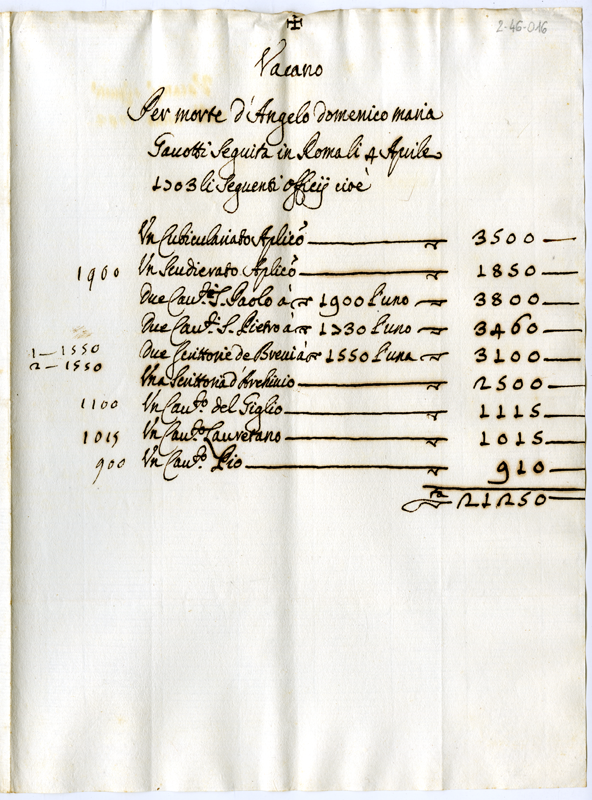 2-46-016
✠
Vacano
Per morte d'Angelo domenico maria
Gavotti Seguita in Roma li 4 Aprile
1703 li Seguenti Officij cioè
Un Cubiculariato Aplicõ 3500
1900 Un Scudierato Aplicõ 1850
Due Cav.ti S. Paolo à 1900 l'uno 3800
Due Cav.ti S. Pietro à 1730 l'uno 3460
1 — 1550
2 — 1550 Due Scrittorie de Brevi à 1550 l'una 3100
Una Scrittoria d'Archivio 2500
1100 Un Cav.to del Giglio 1115
1015 Un Cav.to Lauretano 1015
900 Un Cav.to Pio 910
21250